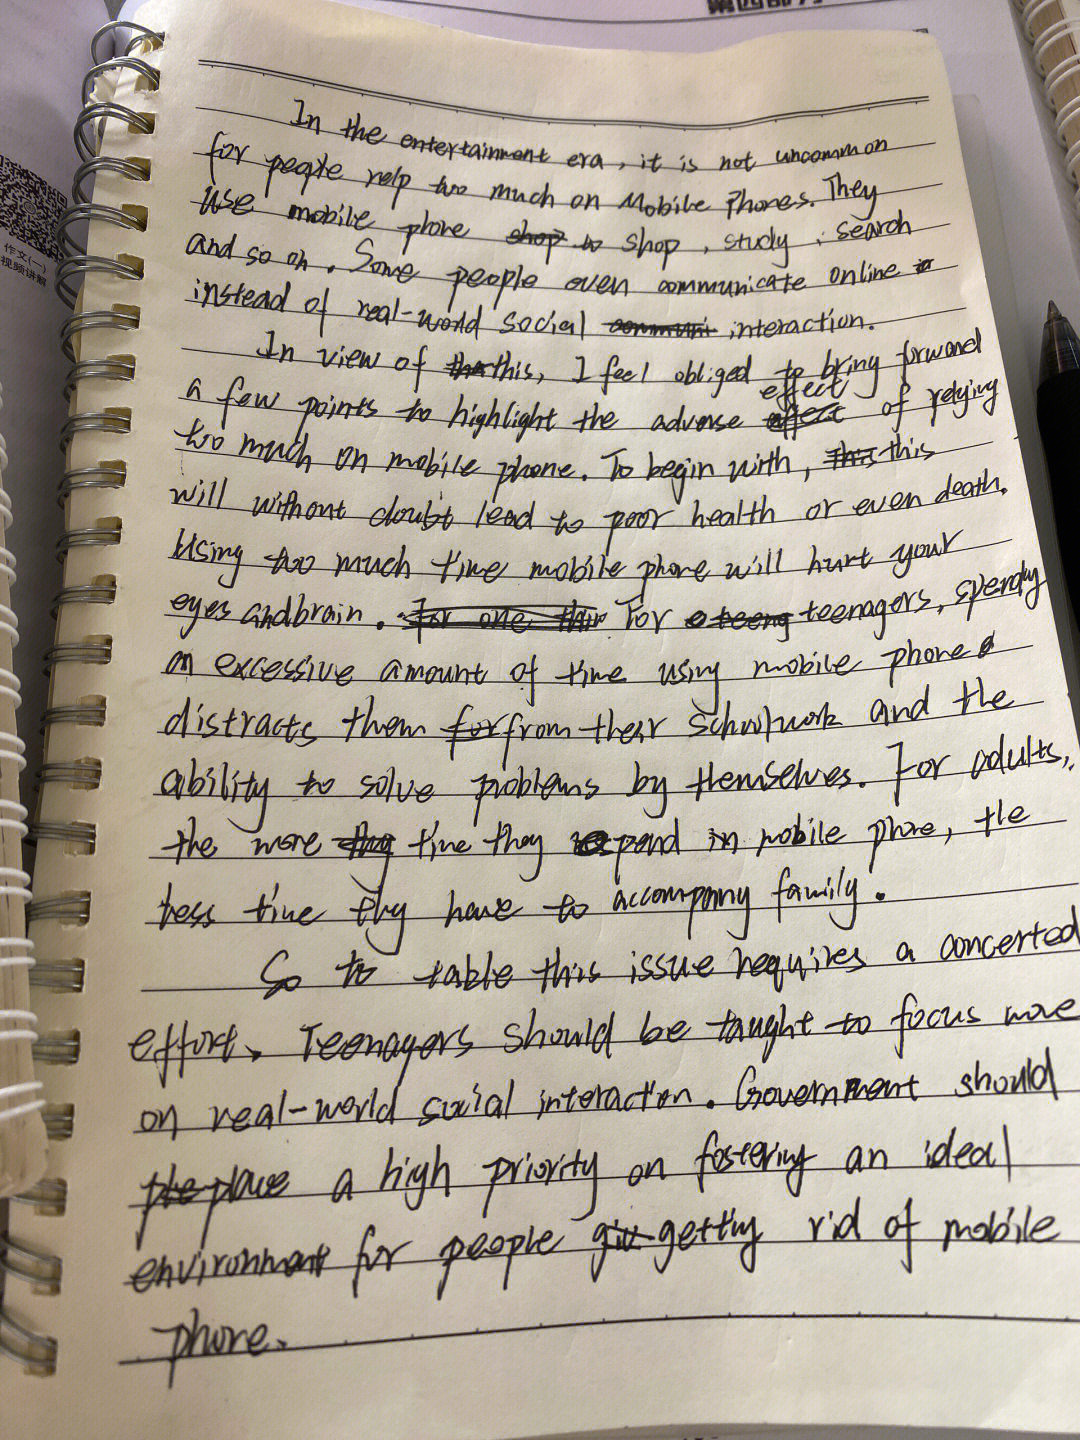 In the entertainment era, it is not uncommon
for people relp too much on Mobile Phones. They
use mobile phone shop to shop, study, search
and so on. Some people even communicate online
instead of real-world social interaction.
In view of this, I feel obliged to bring forward
effect
a few points to highlight the adverse of relying
too much on mobile phone. To begin with, this
will without doubt lead to poor health or even death.
Using too much time mobile phone will hurt your
eyes and brain. For teenagers, spendy
an excessive amount of time using mobile phone
distracts them from their schoolwork and the
ability to solve problems by themselves. For adults,
the more time they spend in mobile phone, the
less time they have to accompany family.
So to table this issue requires a concerted
effort. Teenagers should be taught to focus more
on real-world social interaction. Government should
place a high priority on fostering an ideal
environment for people getting rid of mobile
phone.
作文(一)
视频讲解